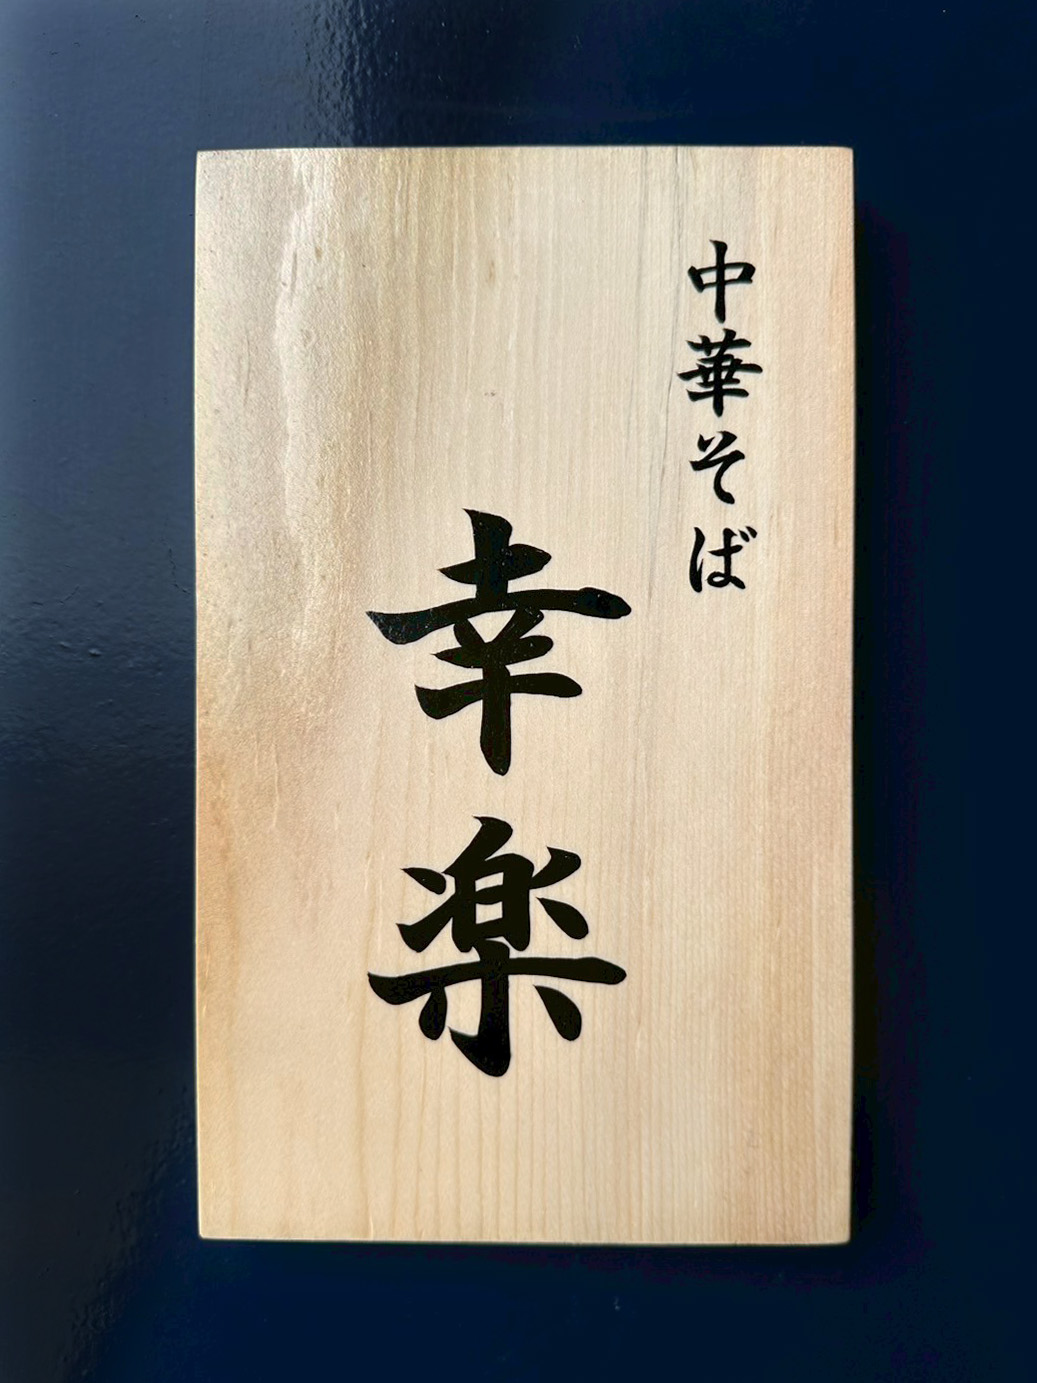 中華そば
幸楽